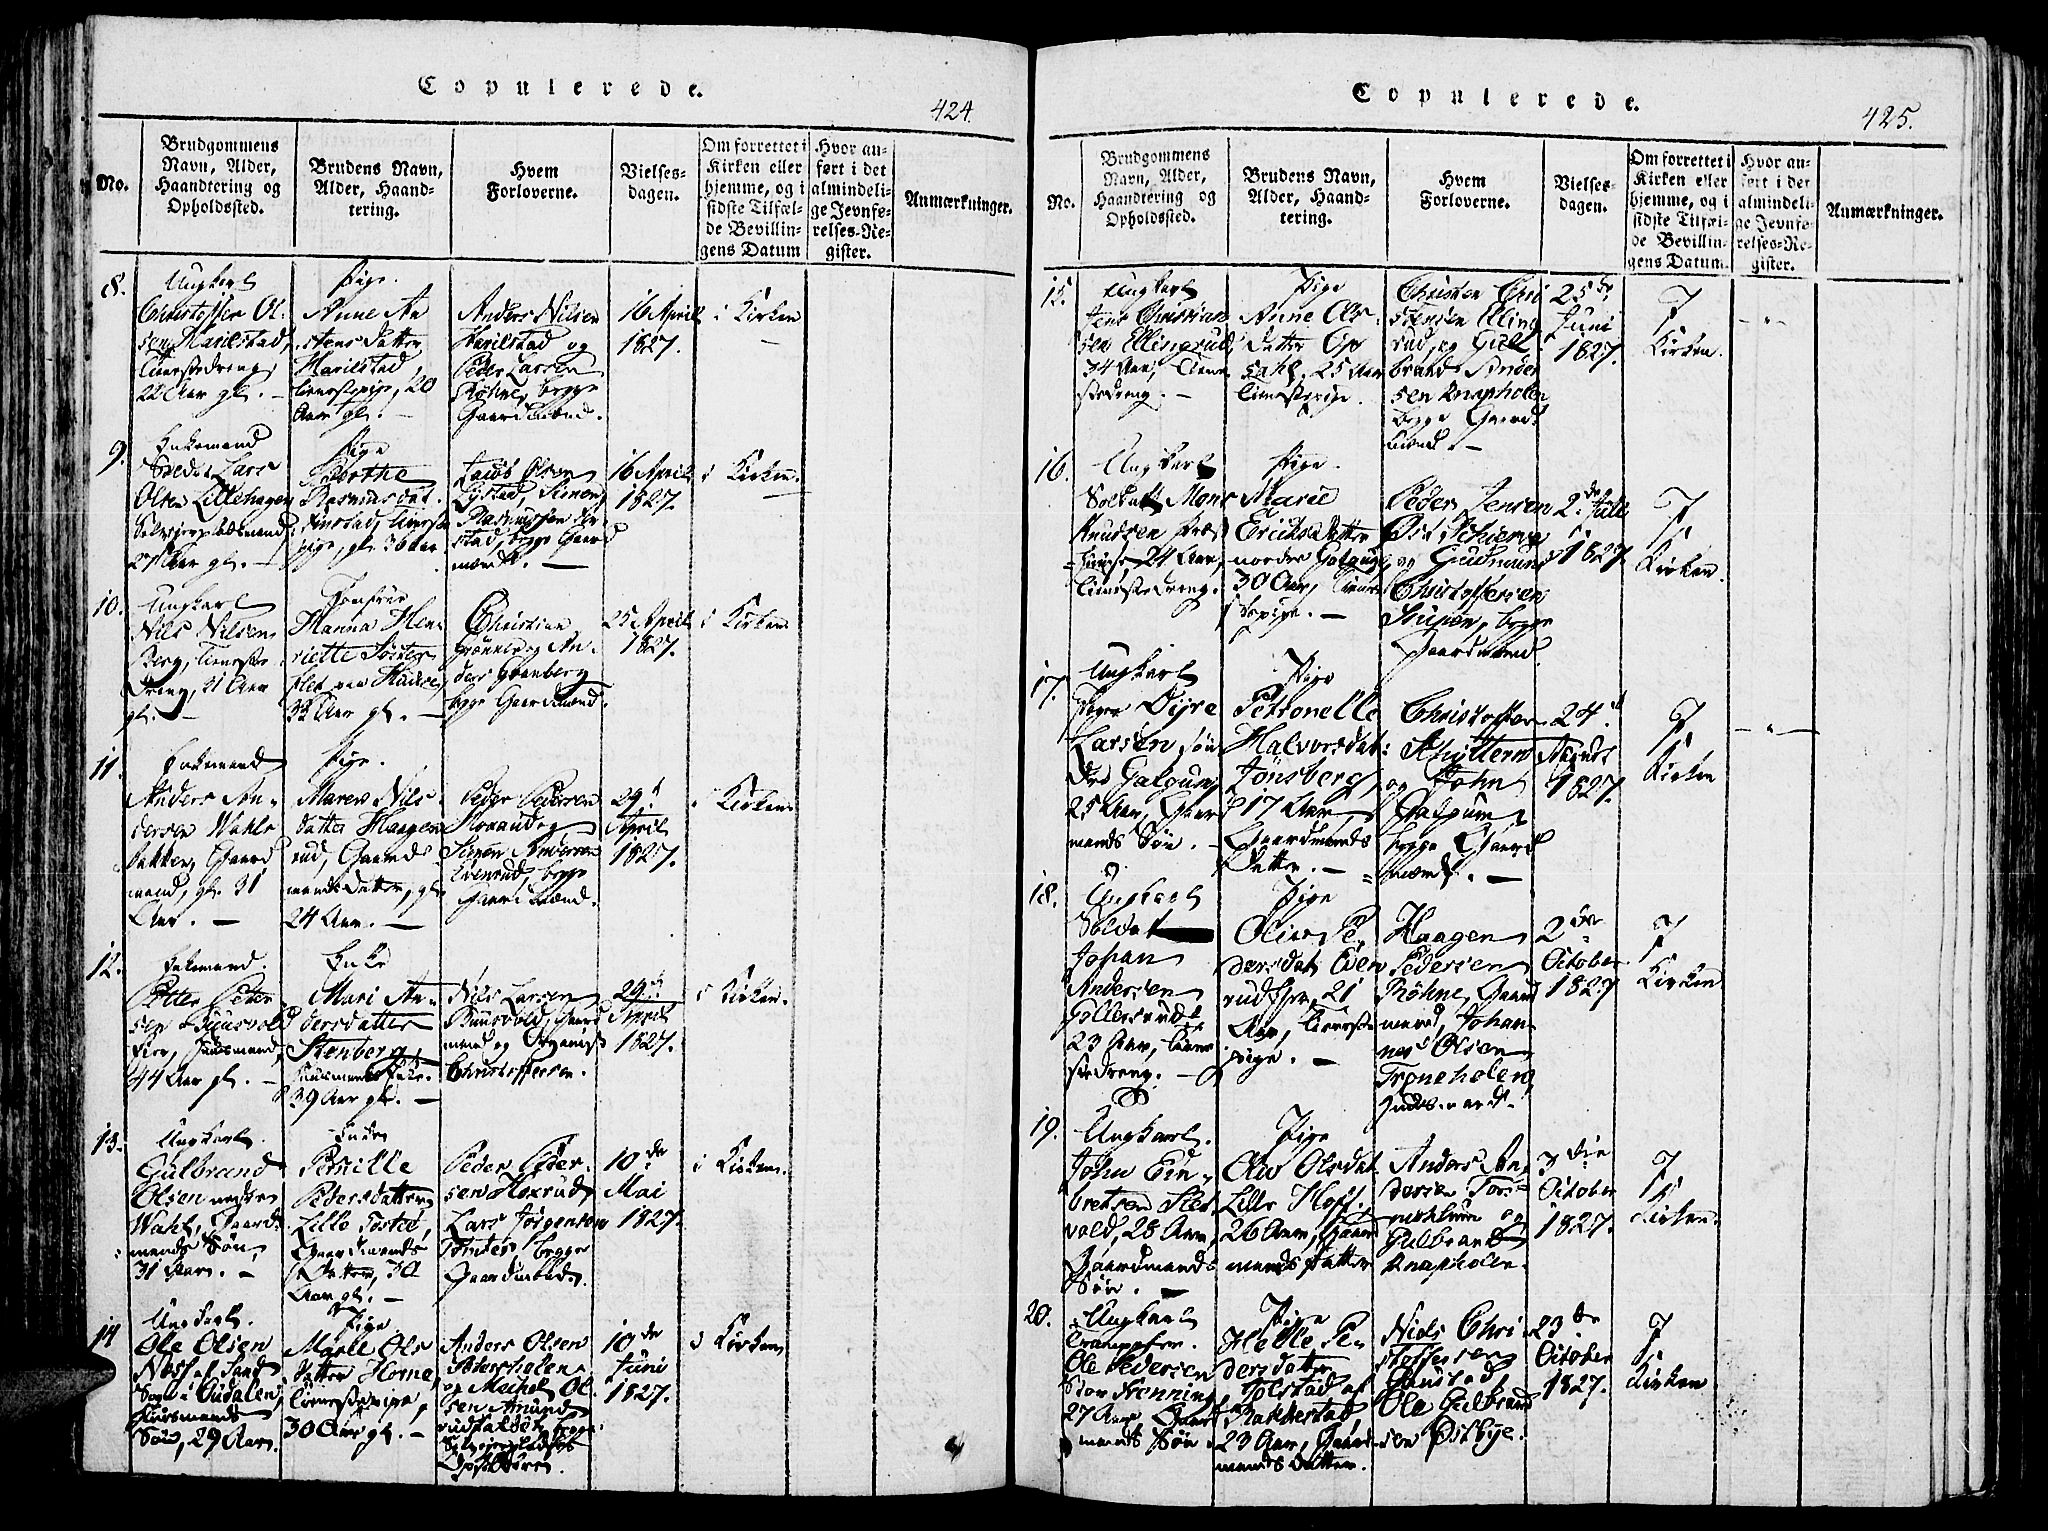 Copulerede.
424.
No.
Brudgommens
Navn, Alder,
Haandtering og
Opholdssted.
Brudens Navn,
Alder, Haand-
tering.
Hvem
Forloverne.
Vielses-
dagen.
Om forrettet i
Kirken eller
hjemme, og i
sidste Tilfæl-
de Bevillin-
gens Datum
Hvor an-
ført i det
almindeli-
ge Jevnfø-
relses-Re-
gister.
Anmærkninger.
8.
Ungkarl
Christoffer Ol-
sen Harilstad,
Tienestedreng,
22 Aar gl. —
Pige.
Anne An
stens Datter
Harilstad,
Tienestepige, 20
Aar gl. —
Anders Nilsen
Harilstad og
Peder Larsen
Röhne, begge
Gaardmænd.
16 April
1827.
i Kirken
9.
Enkemand
Lars
Olsen Lillehagen
27 Aar gl. —
Pige
Berthe
Rasmusdat.
Tieneste
pige, gl. 36 Aar
Jacob Olsen
Simen
Rasmussen
stad, begge Gaard
mænd. —
16 April
1827.
i Kirken.
10.
Ungkarl
Nils Nilsen
Berg, Tieneste
Dreng, 21 Aar
gl. —
Jomfrue
Hanna Hen-
riette
33 Aar gl. —
Christian
Grönnie og An-
ders Granberg
begge Gaardmænd.
25 April
1827.
i Kirken.
11.
Enkemand
Anders An-
dersen Wahls
bakken, Gaard
mand, gl. 31
Aar. —
Pige.
Maren Nils-
datter Haagen
rud, Gaard-
mands Datter, gl.
24 Aar. —
Peder Pedersen
Hoxrud og
Simen Andersen
Evenrud, begge
Gaardmænd.
29d
April
1827.
i Kirken.
12.
Enkemand.
Petter Peter-
sen Buusvold
Eier, Huusmand,
44 Aar gl. —
Enke
Mari An-
dersdatter
Stenberg,
Huusmands Enke.
39 Aar gl. —
Nils Larsen
Buusvold, Gaard
mand og
Christoffersen.
29d
April
1827.
i Kirken.
13.
Ungkarl.
Gulbrand
Olsen nedre
Wahl, Gaard-
mands Søn,
31 Aar. —
Pernille
Pedersdatter
Lille
Gaardmands
Datter, 30
Aar gl. —
Peder Peder-
sen Hoxrud,
Lars Jørgensen
Tomter, begge
Gaardmænd.
10de
Mai
1827.
i Kirken.
14
Ungkarl.
Ole Olsen
Huusmands
Søn, 29 Aar.
Pige
Marte Ols
datter Horne,
Tienestepige,
30 Aar gl. —
Anders Olsen
og Michel Ol-
sen Amund
rud
10de
Juni
1827.
i Kirken
Copulerede.
425.
No.
Brudgommens
Navn, Alder,
Haandtering og
Opholdssted.
Brudens Navn,
Alder, Haand-
tering.
Hvem
Forloverne.
Vielses-
dagen.
Om forrettet i
Kirken eller
hjemme, og i
sidste Tilfæl-
de Bevillin-
gens Datum.
Hvor an-
ført i det
almindeli-
ge Jevnfø-
relses-Re-
gister.
Anmærkninger.
15.
Ungkarl
Jens Christian
sen Ellingsrud,
34 Aar, Tiene
stedreng. —
Pige
Anne Ols-
datter Op
sahl, 25 Aar
Tienestepige.
Christen Chri
stensen Elling
rud, og Gul-
brand Ander
sen Knapholen
begge Gaard
mænd. —
25de
Juni
1827.
I
Kirken.
— " —
16.
Ungkarl
Soldat Mons
Knudsen
24 Aar,
Tienestedreng.
Pige.
Marie
Eriksdatter
nordre Galgum,
30 Aar, Tiene
stepige. —
Peder Jensen
og Gudmund
Christoffersen
begge
Gaardmænd.
2de Julii
1827.
I
Kirken.
17.
Ungkarl
Dyre
Larsen søn
dre Galgum,
25 Aar, Gaard
mands Søn. —
Pige
Petronelle
Halvorsdat:
Jönsberg,
17 Aar,
Gaardmands
Datter. —
Christoffer
og John
Galgum,
begge Gaard
mænd. —
24d
August
1827.
I
Kirken
— " —
18.
Ungkarl
Soldat
Johan
Andersen
Gollersrud
23 Aar, Tiene
stedreng. —
Pige
Olive Pe-
dersdat. Even
rud Eier, 21
Aar, Tieneste
pige. —
Haagen
Pedersen
Röhne, Gaard
mand, Johan
nes Olsen
Troneholen,
Huusmand.
2den
October
1827
I
Kirken
19.
Ungkarl.
John Em-
bretsen Slet-
vold, 28 Aar,
Gaardmands
Søn. —
Pige
Olia Olsdat.
Lille Hoff,
26 Aar, Gaard
mands Datter
Anders An-
dersen
og
Gulbrand
Knapholen.
3die
October
1827.
I
Kirken.
20.
Ungkarl
Ole Pedersen
Stor Fenning,
27 Aar, Gaard
mands Søn.
Pige
Helle Pe-
dersdatter
Tolstad af
Rakkestad,
23 Aar, Gaard-
mands Datter.
Niels Chri
stoffersen
Ole Gulbrand
sen Østbye.
23de
October
1827.
I
Kirken